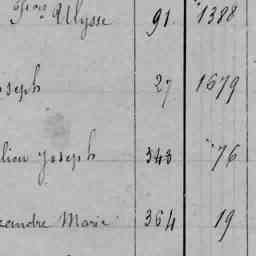 Fçois Ulysse 91. 1388
oseph 27 1679
lien Joseph 343 76
xandre Marie 364 19